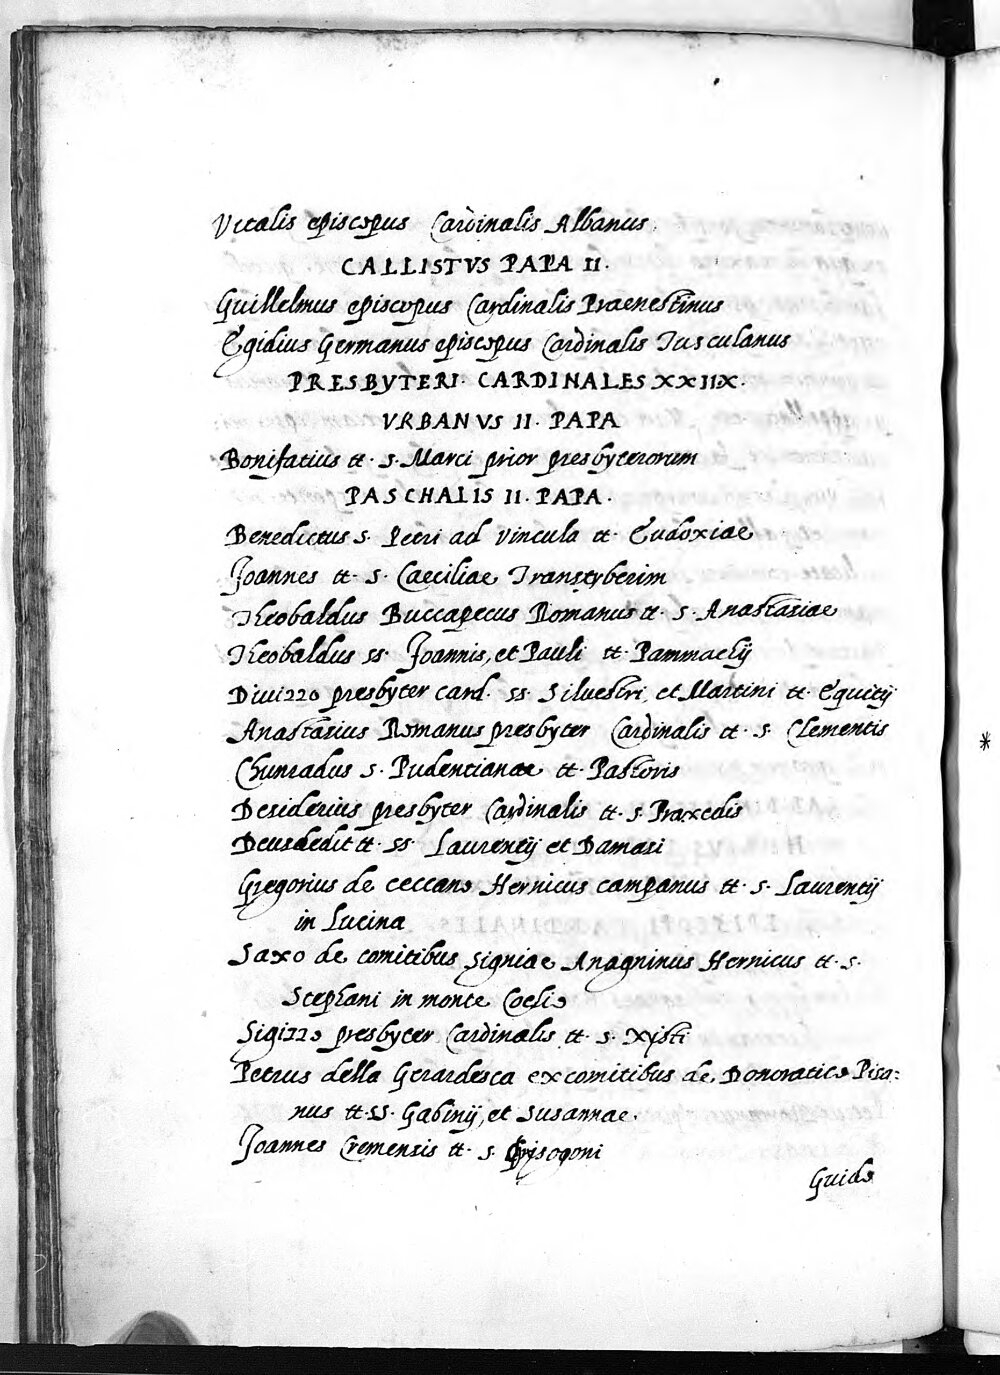 Vitalis episcopus Cardinalis Albanus.
CALLISTVS PAPA II.
Guillelmus episcopus Cardinalis Praenestinus
Egidius Germanus episcopus Cardinalis Tusculanus
PRESBVTERI. CARDINALES XXIIX.
VRBANVS II. PAPA
Bonifatius tt. s. Marci prior presbyterorum
PASCHALIS II. PAPA.
Benedictus s. Petri ad vincula tt. Eudoxiae
Joannes tt. s. Caeciliae Transtyberim
Theobaldus Buccapecus Romanus tt. s. Anastasiae
Theobaldus ss. Joannis, et Pauli tt. Pammachij
Divizzo presbyter card. ss. Silvestri, et Martini tt. Equitij
Anastasius Romanus presbyter Cardinalis tt. s. Clementis
Chunradus s. Pudentianae tt. Pastoris
Desiderius presbyter Cardinalis tt. s. Praxedis
Deusdedit tt. ss. Laurentij et Damasi
Gregorius de ceccano Hernicus campanus tt. s. Laurentij
in Lucina
Saxo de comitibus Signiae Anagninus Hernicus tt. s.
Stephani in monte Coelio
Sigizzo presbyter Cardinalis tt. s. Xysti
Petrus della Gerardesca ex comitibus de, Donoratico Pisa:
nus tt. ss. Gabinij, et Susannae.
Joannes Cremensis tt. s. Grisogoni
Guido
*